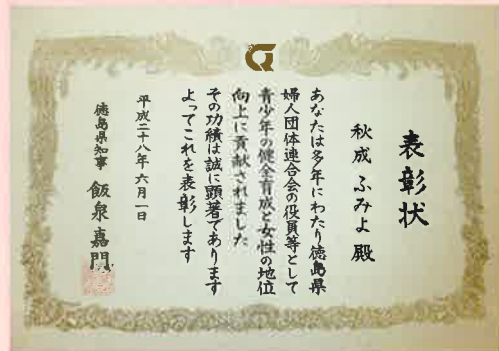 表彰状
秋成 ふみよ 殿
あなたは多年にわたり徳島県
婦人団体連合会の役員等として
青少年の健全育成と女性の地位
向上に貢献されました
その功績は誠に顕著であります
よってこれを表彰します
平成二十八年六月一日
徳島県知事 飯泉 嘉門